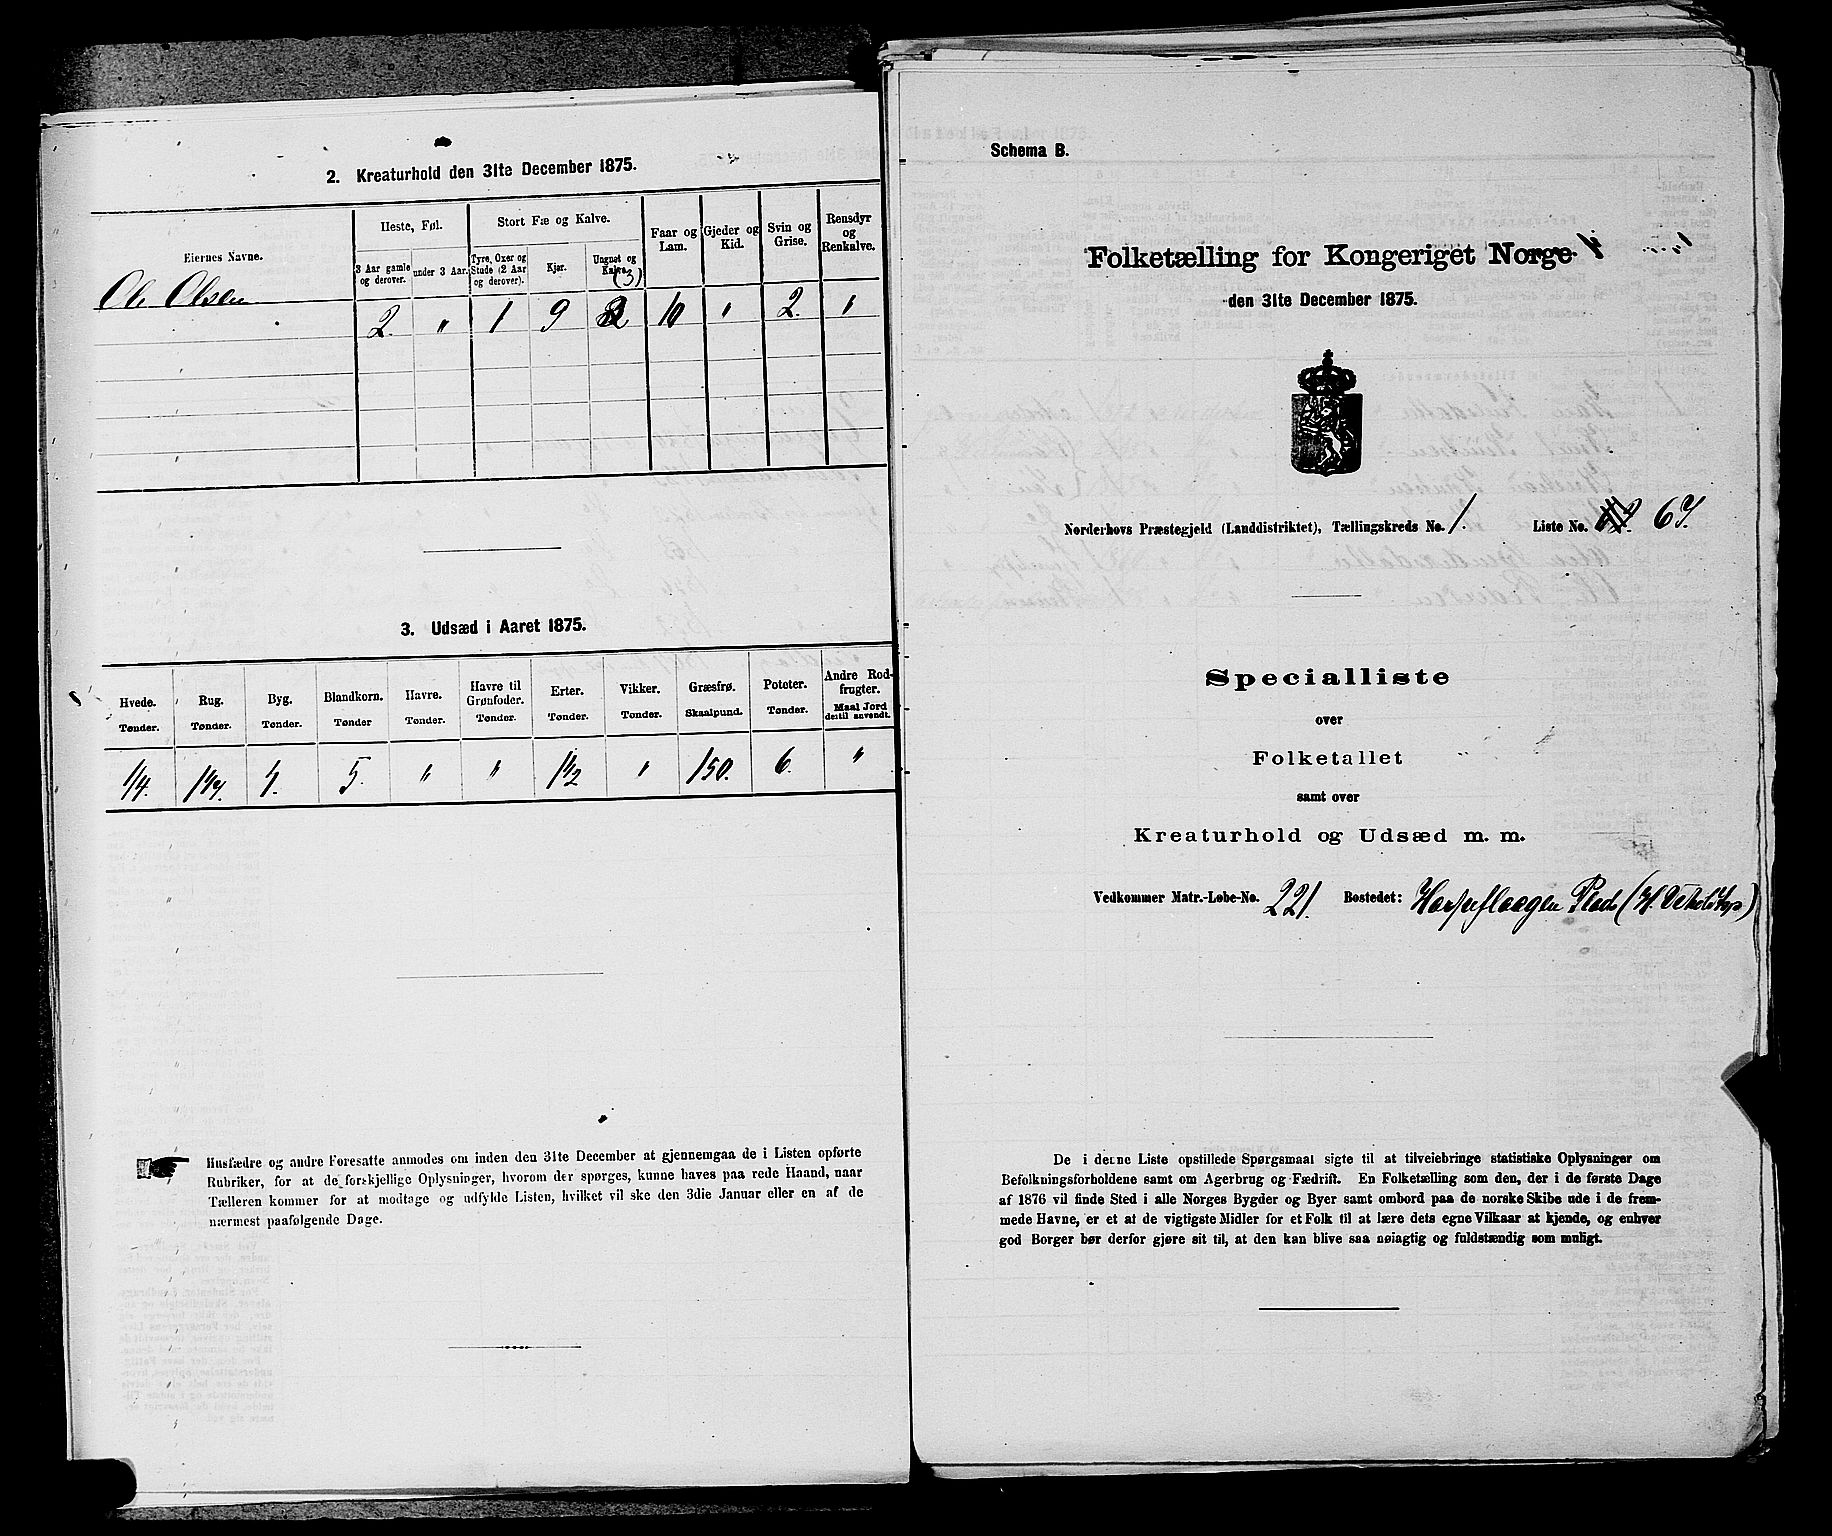 2. Kreaturhold den 31te December 1875.
Eiernes Navne.
Heste, Føl.
3 Aar gamle og derover.
under 3 Aar.
Stort Fæ og Kalve.
Tyre, Oxer og Stude (2 Aar og derover).
Kjør.
Ungnøt og Kalve.
Faar og Lam.
Gjeder og Kid.
Svin og Grise.
Rensdyr og Renkalve.
(3)
Ole Olsen 2. " 1 9 2 10 " 2. "
3. Udsæd i Aaret 1875.
Hvede. Rug. Byg. Blandkorn. Havre. Havre til Grønfoder. Erter. Vikker. Græsfrø. Poteter. Andre Rodfrugter.
Tønder. Tønder. Tønder. Tønder Tønder. Tønder. Tønder. Tønder. Skaalpund. Tønder. Maal Jord dertil anvendt.
1/4. 5. " " 1 1/2 " 150. 6. "
Husfædre og andre Foresatte anmodes om inden den 31te December at gjennemgaa de i Listen opførte
Rubriker, for at de forskjellige Oplysninger, hvorom der spørges, kunne haves paa rede Haand, naar
Tælleren kommer for at modtage og udfylde Listen, hvilket vil ske den 3die Januar eller en af de
nærmest paafølgende Dage.
Schema B.
Folketælling for Kongeriget Norge
den 31te December 1875.
Norderhovs Præstegjeld (Landdistriktet), Tællingskreds No. 1. Liste No. 67.
Specialliste
over
Folketallet
samt over
Kreaturhold og Udsæd m. m.
Vedkommer Matr.-Løbe-No. 221. Bostedet: Plads
De i denne Liste opstillede Spørgsmaal sigte til at tilveiebringe statistiske Oplysninger om
Befolkningsforholdene samt om Agerbrug og Fædrift. En Folketælling som den, der i de første Dage
af 1876 vil finde Sted i alle Norges Bygder og Byer samt ombord paa de norske Skibe ude i de frem-
mede Havne, er et at de vigtigste Midler for et Folk til at lære dets egne Vilkaar at kjende, og enhver
god Borger bør derfor gjøre sit til, at den kan blive saa nøiagtig og fuldstændig som muligt.